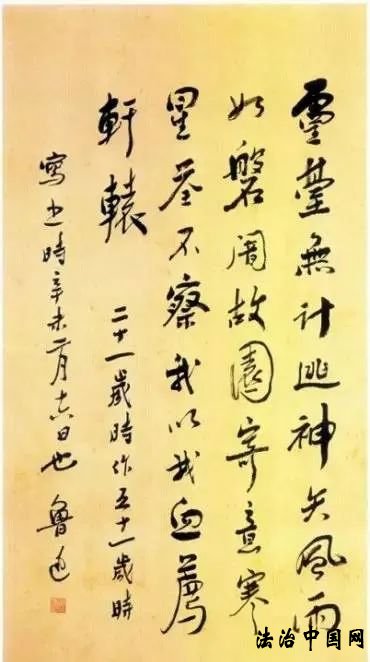 靈臺無計逃神矢風雨
如磐闇故園寄意寒
星荃不察我以我血薦
軒轅
二十一歲時作五十一歲時
寫之時辛未二月十六日也 魯迅
法治中国网